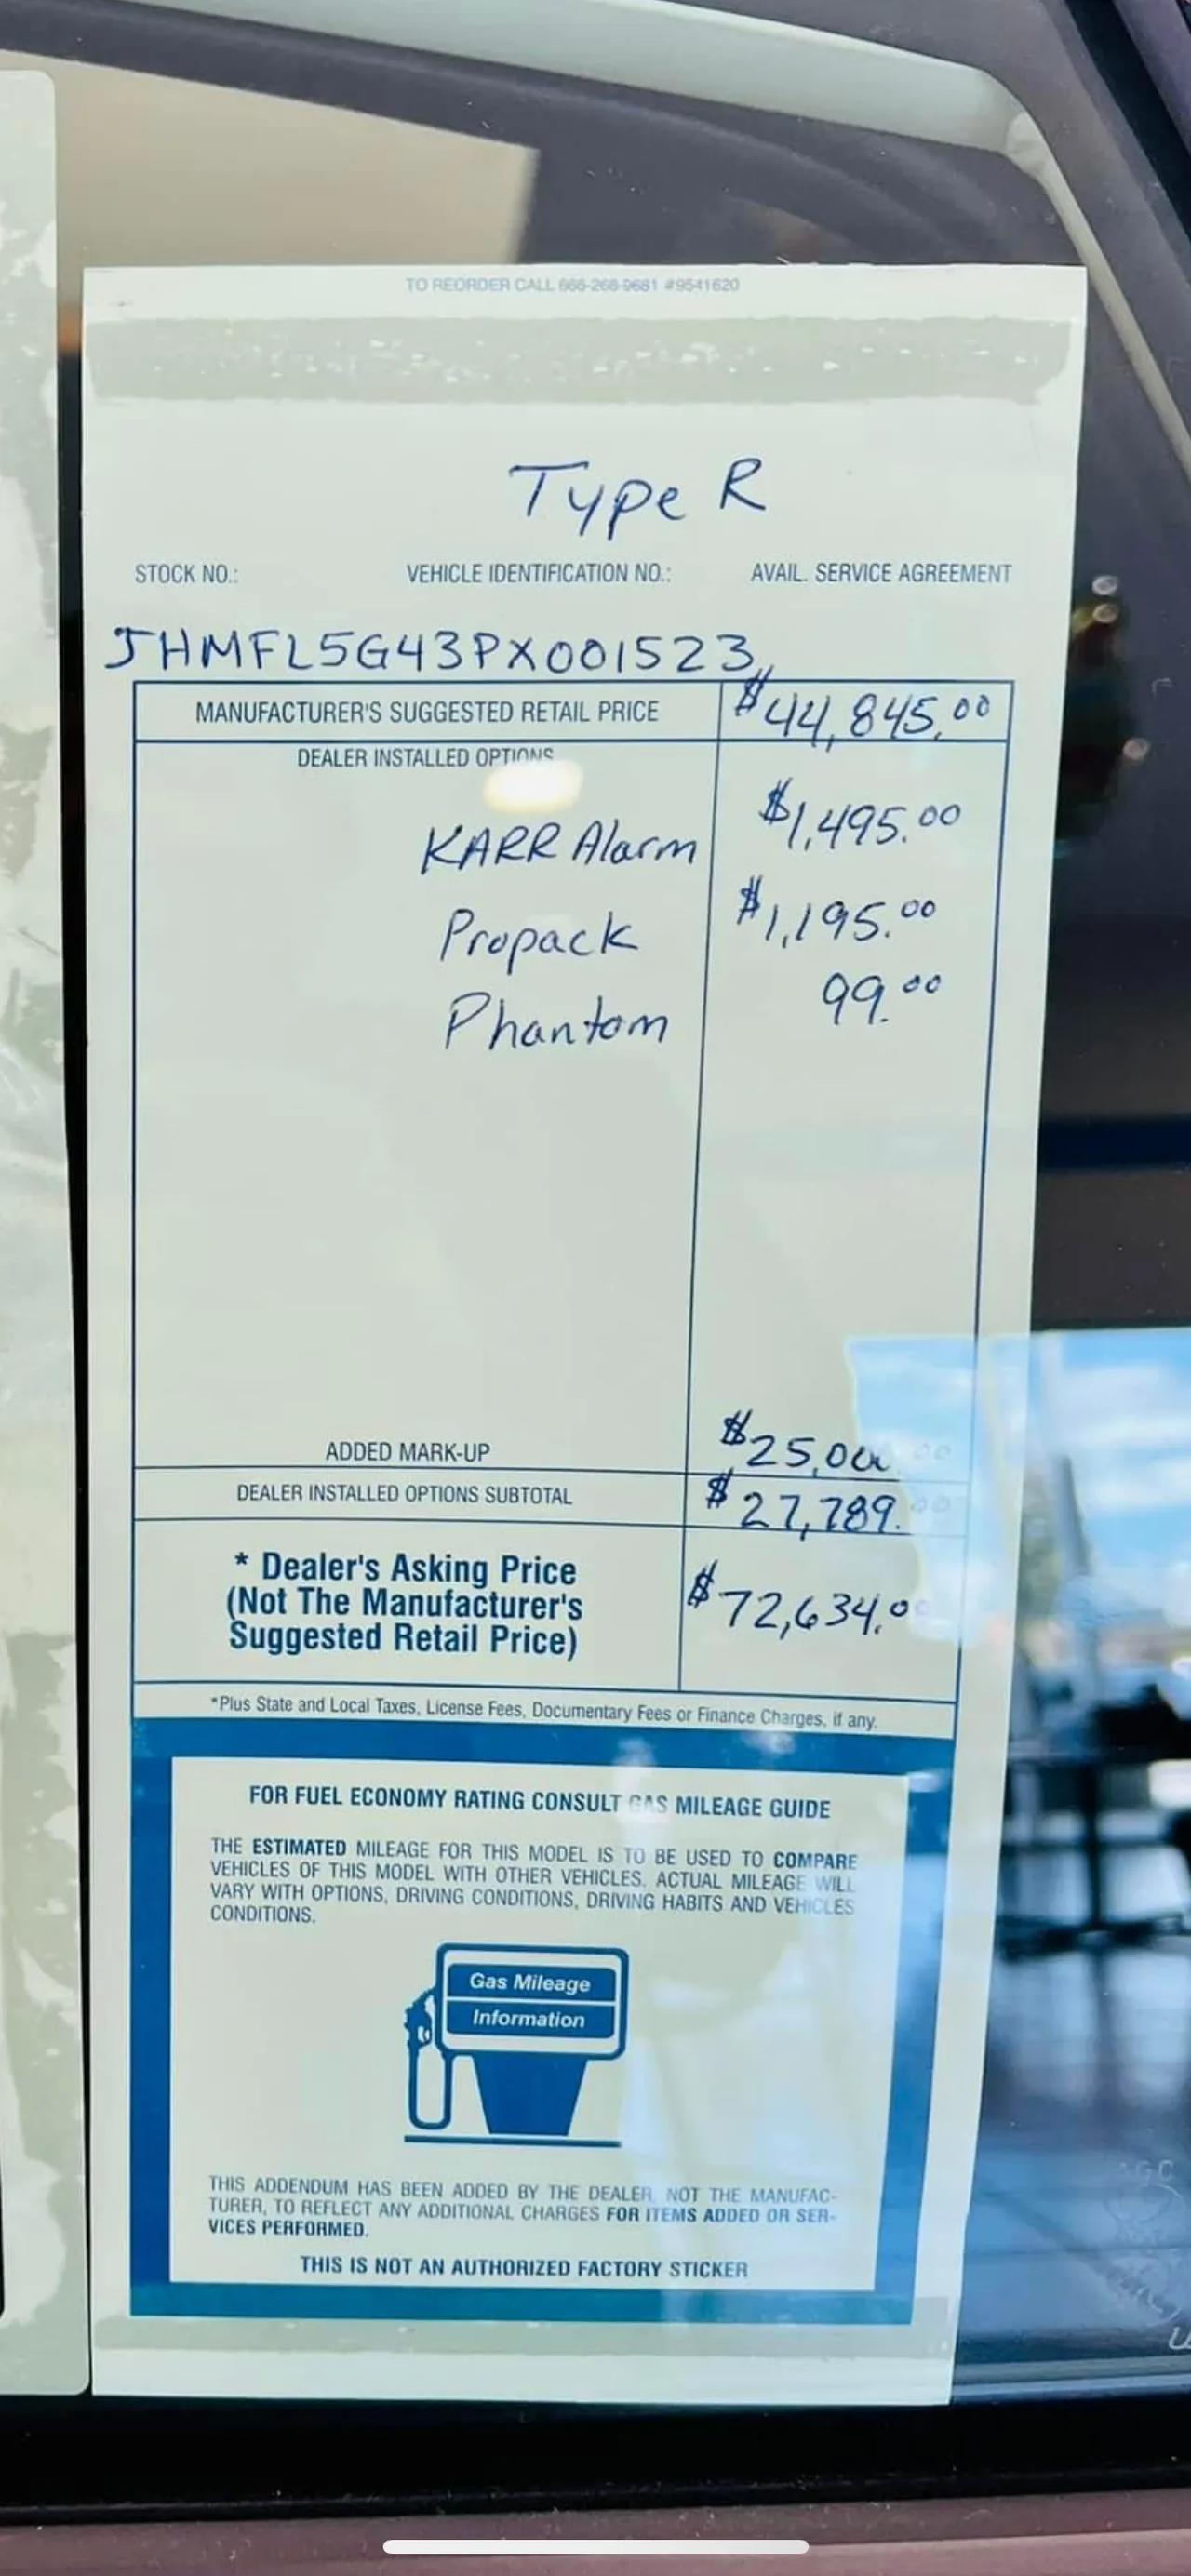 TO REORDER CALL 666-268-9681 #9541620
Type R
STOCK NO.: VEHICLE IDENTIFICATION NO.: AVAIL. SERVICE AGREEMENT
JHMFL5G43PX001523
MANUFACTURER'S SUGGESTED RETAIL PRICE $44,845.00
DEALER INSTALLED OPTIONS
KARR Alarm $1,495.00
Propack $1,195.00
Phantom 99.00
ADDED MARK-UP $25,000.00
DEALER INSTALLED OPTIONS SUBTOTAL $27,789.00
* Dealer's Asking Price
(Not The Manufacturer's
Suggested Retail Price) $72,634.00
*Plus State and Local Taxes, License Fees, Documentary Fees or Finance Charges, if any.
FOR FUEL ECONOMY RATING CONSULT GAS MILEAGE GUIDE
THE ESTIMATED MILEAGE FOR THIS MODEL IS TO BE USED TO COMPARE
VEHICLES OF THIS MODEL WITH OTHER VEHICLES. ACTUAL MILEAGE WILL
VARY WITH OPTIONS, DRIVING CONDITIONS, DRIVING HABITS AND VEHICLES
CONDITIONS.
Gas Mileage
Information
THIS ADDENDUM HAS BEEN ADDED BY THE DEALER, NOT THE MANUFAC-
TURER, TO REFLECT ANY ADDITIONAL CHARGES FOR ITEMS ADDED OR SER-
VICES PERFORMED.
THIS IS NOT AN AUTHORIZED FACTORY STICKER